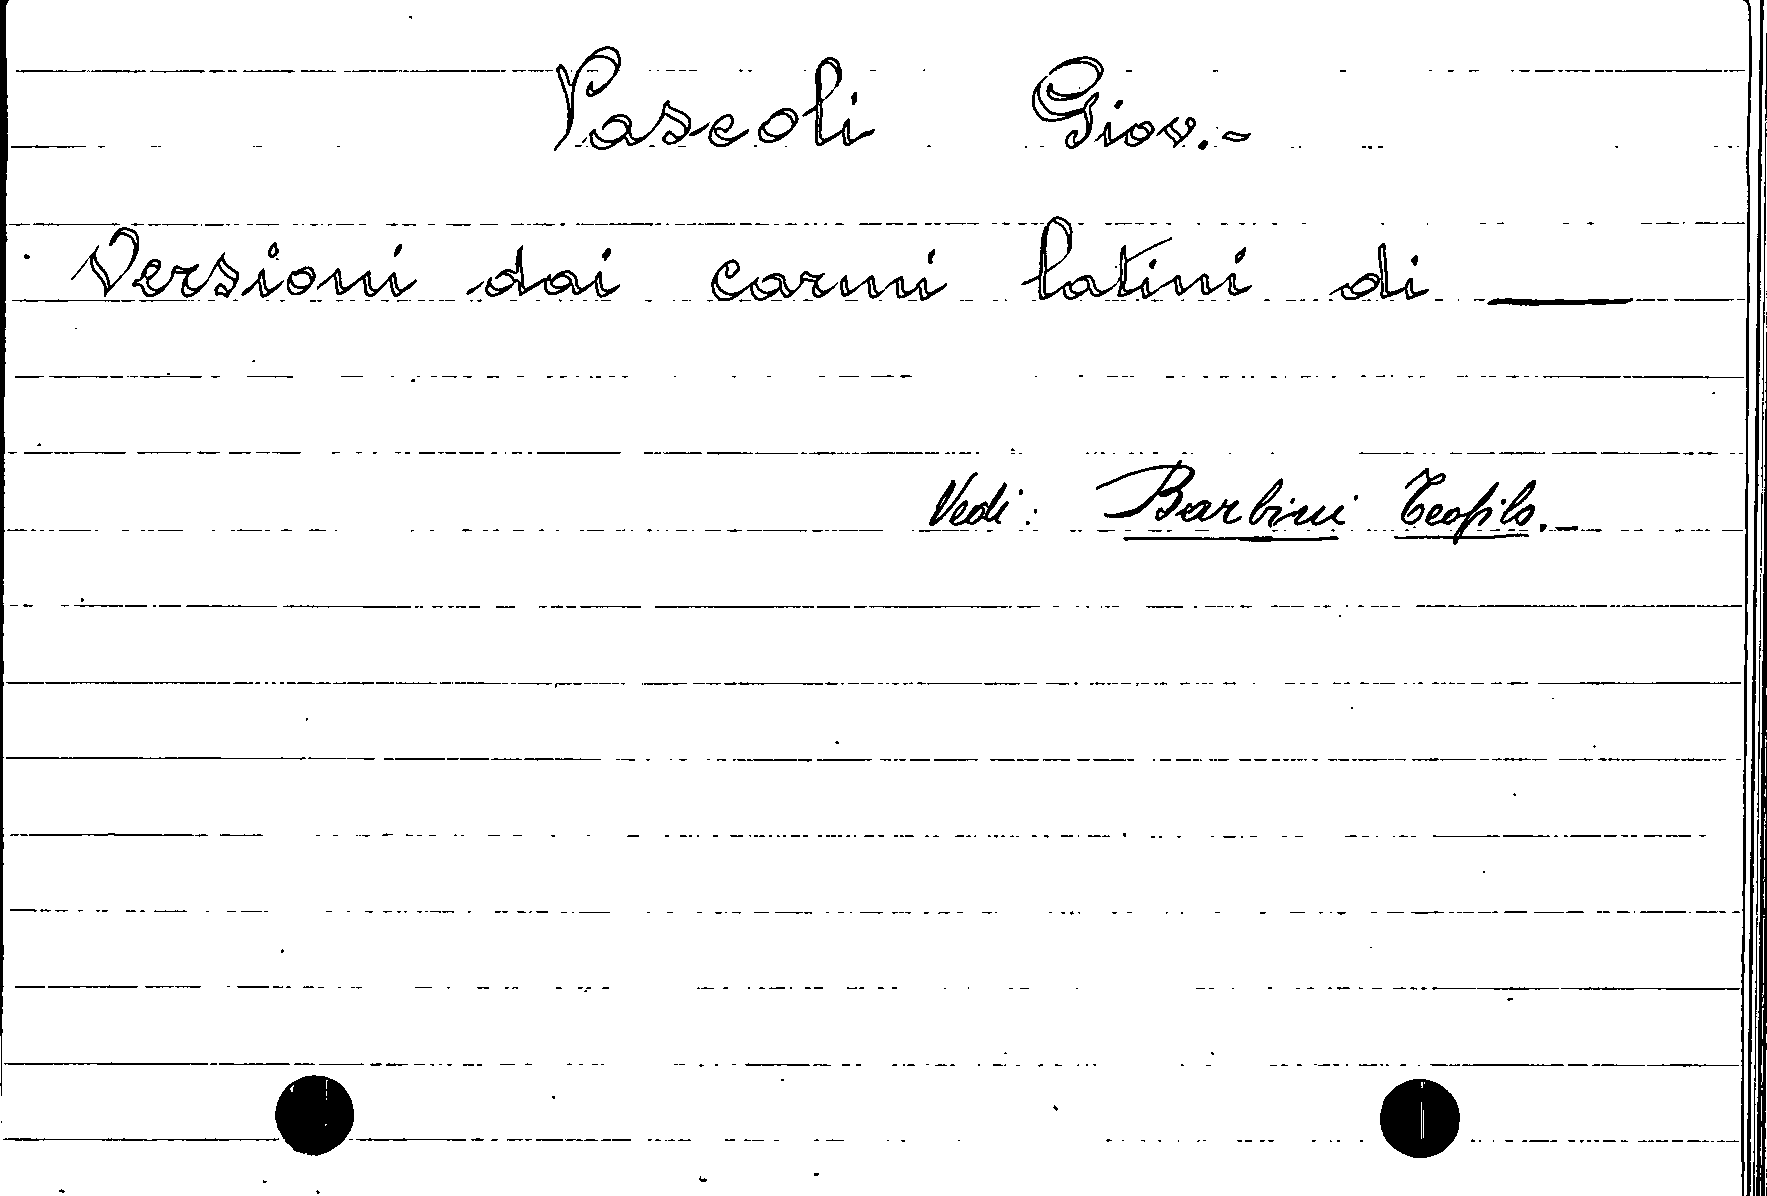 Pascoli Giov.-
Versioni dai carmi latini di ___
Vedi: Barbini Teofilo.-